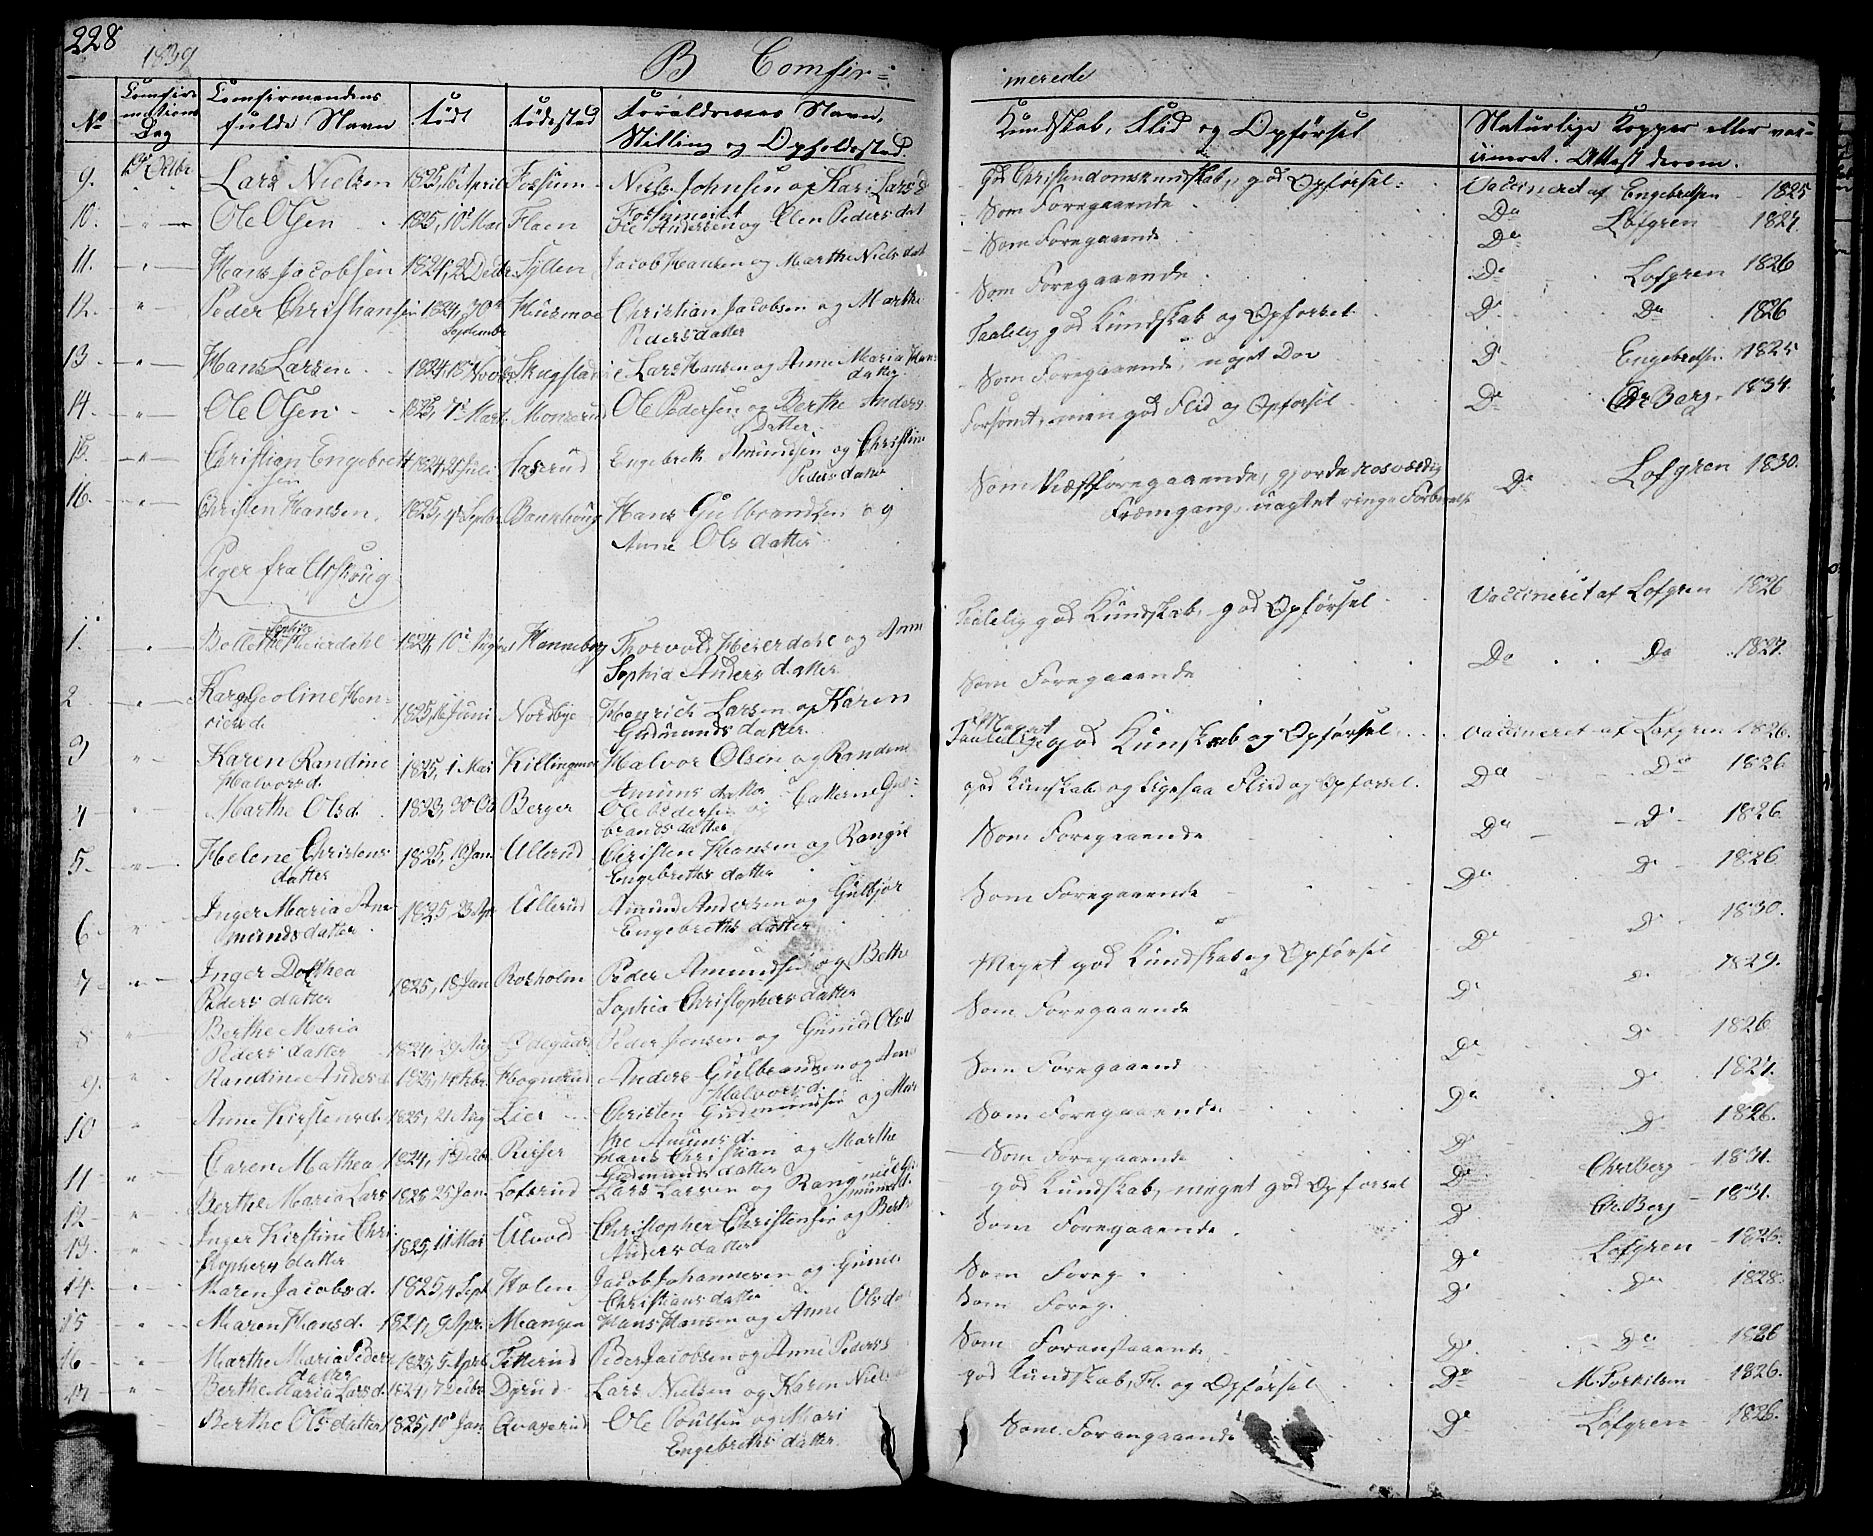 228
1839
B Comfir=
merede
No
Comfir
mations
Dag
Comfirmandens
fulde Navn
Født
Fødested
Forældrenes Navn,
Stilling og Opholdssted.
Kundskab, Flid og Opførsel
Naturlige Kopper eller vac-
cineret. Attest derom.
9. Lars Nielsen 1825, 16 April Fossum Niels Johnsen og Kari Larsd
god Christendomskundskab, god Opførsel Vaccineret af Engebretsen 1825
10. Ole Olsen 1825, 10 Mai Flaen Ole Andersen og Elen Pedersdat
Som Foregaaende Do Løfgren 1827.
11. Hans Jacobsen 1824, 2 Decbr Syllen Jacob Hansen og Marthe Nielsdat
Som Foregaaende Do
12. Peder Christiansen 1824, 30
September Huusmoe Christian Jacobsen og Marthe
Pedersdatter
Som Foregaaende Do Lofgren 1826
13 Hans Larsen 1824, Novbr Skugstad Lars Hansen og Anne Maria Hans
datter
Taalelig god Kundskab og Opførsel Do Do 1826
14. Ole Olsen 1825, 7 Marts Monserud Ole Pedersen og Berthe Anders
Datter
Som Foregaaende, noget Dov Do Engebretsen 1825
15. Christian Engebrett
sen 1824, 21 Juli Engebrett Amundsen og Christine
Pedersdatter
Forsømt, men god Flid og Opførsel Do Chr Berg 1834
16. Christen Hansen 1825, Septbr Hans Gulbrandsen og
Anne Olsdatter
Som Næstforegaaende, gjorde rosværdig
Fremgang, uagtet ringe Forberedelse Do Lofgren 1830.
Piger fra Urskoug
1. Bollette Sophie Heierdahl 1824, 10 Hanneborg Thorvold Heierdahl og Anne
Sophia Andersdatter
Taalelig god Kundskab, god Opførsel Vaccineret af Lofgren 1826
2 Karen Oline Hen-
richsd. 1825, 16 Juni Nordbye Henrich Larsen og Karen
Gudmundsdatter.
Som Foregaaende Do Do 1827.
3 Karen Randine
Halvorsd. 1825, 1 Mai Killingmo Halvor Olsen og Randine
Amundsdatter
Meget
Taalelig god Kunskab og Opførsel Vaccineret af Lofgren 1826.
4 Marthe Olsd. 1823, 30 Oct Berger Ole Pedersen og Cathrine Gul=
brandsdatter
god Kundskab og ligesaa Fliid og Opførsel. Do Do 1826.
5. Helene Christens
datter 1825, 10 Jan Ullerud Christen Hansen og Rangni
Engebrettsdatter
Som Foregaaende Do Do 1826.
6 Inger Maria A
mundsdatter 1825 23 Apr Ullerud Amund Andersen og Gulbjør
Engebrettsdatter
Som Foregaaende Do Do 1826
7 Inger Dorthea
Pedersdatter 1825, 18 Jan Rosholm Peder Amundsen og Bethe
Sophia Christophersdatter
Meget god Kundskab og Opførsel Do Do 1830.
8 Berthe Maria
Pedersdatter 1824, 29 Aug Ødegaard Peder Jensen og Guneld Olsd
Som Foregaaende Do Do 1829.
9. Randine Andersd 1825, Hognerud Anders Gulbrandsen og Anne
Halvorsd.
Som Foregaaend Do Do 1826
10 Anne Kirstensd. 1825, 21 Aug Lier Christen Gudmundsen og Mar
the Amunsd.
Som Foregaaende Do Do 1827.
11 Caren Mathea 1824, 1 Decbr Reiser Hans Christian og Marthe
Gudmundsdatter
Som Foregaaende Do Do 1826.
12 Berthe Maria Lars 1825 25 Jan Lofsrud Lars Larsen og Rangnild
god Kundskab, meget god Opførsel Do Chr Berg 1831.
13. Inger Kirstine Chri
stophersdatter 1825, 11 Mar Ulvold Christopher Christensen og Berthe
Andersdatter
Som Foregaaende. Do Chr. Berg 1831.
14. Maren Jacobsd. 1825, 4 Sept Holen Jacob Johannesen og Gunild
Christiansdatter
Som Foreg. Do Lofgren 1826.
15 Maren Hansd. 1824, 9 Apr. Mangen Hans Hansen og Anne Olsda
Som Foreg. Do Do 1828.
16 Marthe Maria Peders
datter 1825, 5 April Fetterud Peder Jacobsen og Anne Peders
Som Foranstaaende Do Do 1826
17 Berthe Maria Larsd. 1824, 7 Decbr Dyrud Lars Nielsen og Karen Niels
god Kundskab, Fl. og Opførsel Do M. Torkilsen 1826.
Berthe Olsdatter 1825, 10 Jan Qvaserud Ole Poulsen og Mari
Engebrettsdatter.
Som Forangaaende Do Lofgren 1826.